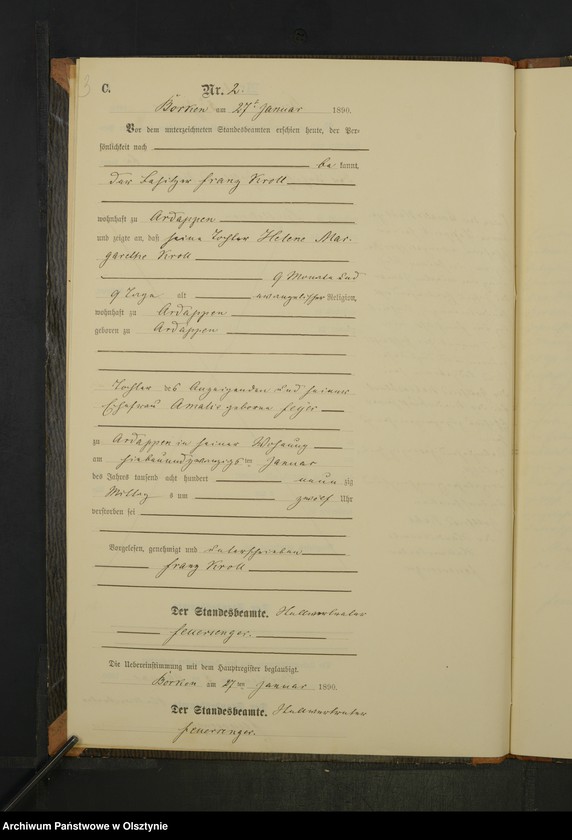 3
C.
Nr. 2.
Borken am 27t Januar 1890.
Vor dem unterzeichneten Standesbeamten erschien heute, der Per-
sönlichkeit nach
be kannt,
der Besitzer Franz Kroll
wohnhaft zu Ardappen
und zeigte an, daß seine Tochter Helene Mar-
garethe Kroll
9 Monate und
9 Tage alt evangelischer Religion,
wohnhaft zu Ardappen
geboren zu Ardappen
Tochter des Anzeigenden und seiner
Ehefrau Amalie geborene
zu Ardappen in seiner Wohnung
am siebenundzwanzigsten Januar
des Jahres tausend acht hundert neun zig
Mittag s um zwölf Uhr
verstorben sei
Vorgelesen, genehmigt und unterschrieben
Franz Kroll
Der Standesbeamte. Stellvertreter
Feuersenger.
Die Uebereinstimmung mit dem Hauptregister beglaubigt.
Borken am 27ten Januar 1890.
Der Standesbeamte. Stellvertreter
Feuersenger.
Archiwum Państwowe w Olsztynie